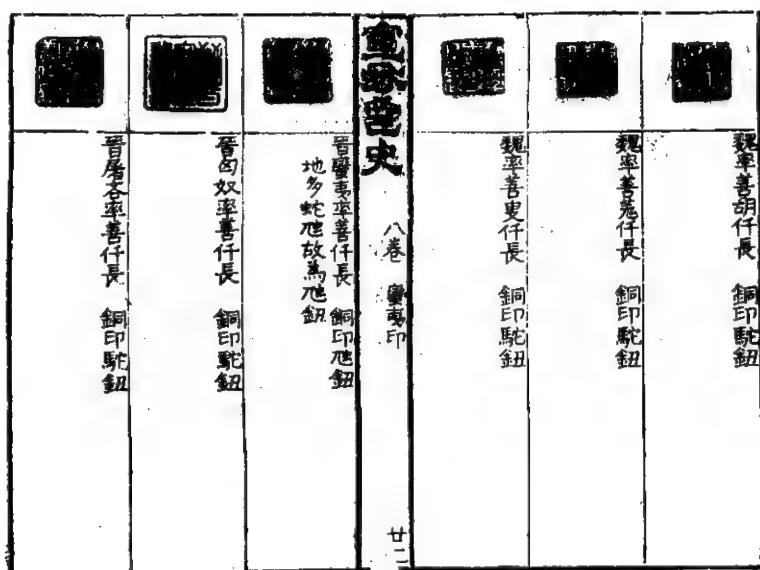 魏率善胡仟長 銅印駝鈕
魏率善羌仟長 銅印駝鈕
魏率善叟仟長 銅印駝鈕
宣龢印史 八卷 蠻夷印 廿二
晉蠻夷率善仟長 銅印虺鈕
地多蛇虺故為虺鈕
晉匈奴率善仟長 銅印駝鈕
晉屠各率善仟長 銅印駝鈕